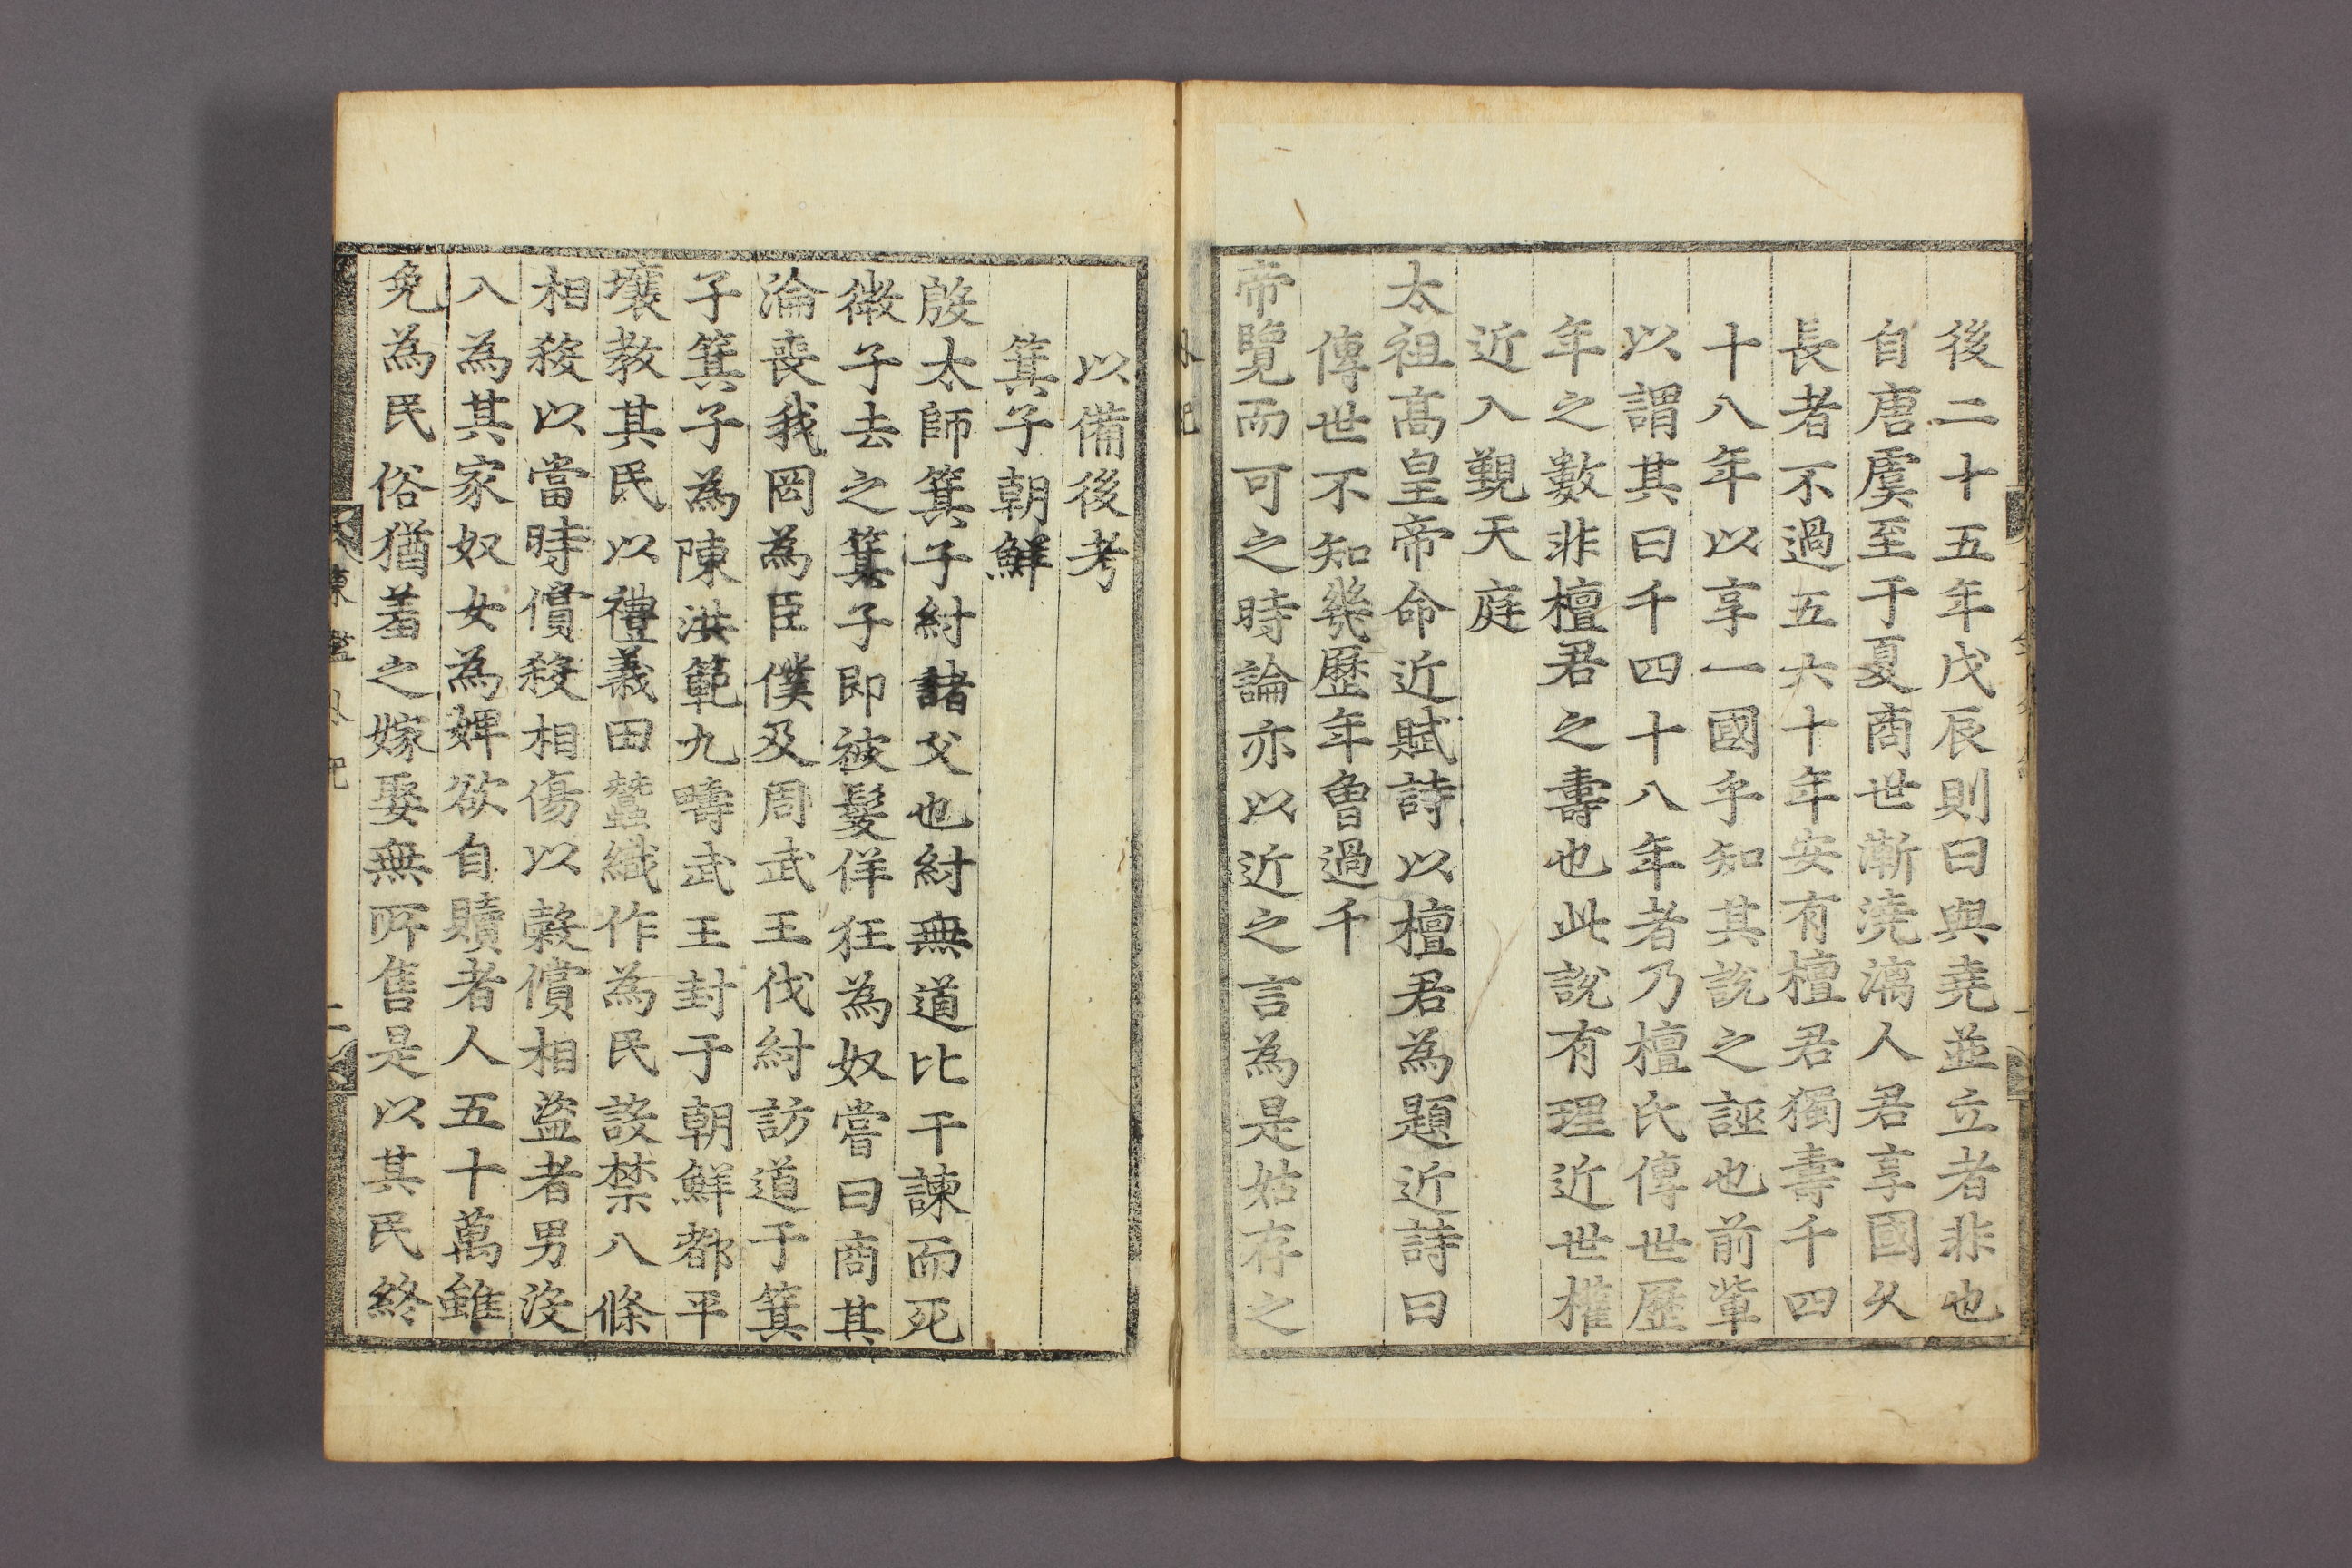 後二十五年戊辰則曰與堯並立者非也
自唐虞至于夏商世漸澆漓人君享國久
長者不過五六十年安有檀君獨壽千四
十八年以享一國乎知其說之誣也前輩
以謂其曰千四十八年者乃檀氏傳世歷
年之數非檀君之壽也此說有理近世權
近入覲天庭
太祖高皇帝命近賦詩以檀君爲題近詩曰
傳世不知幾歷年曾過千
帝覽而可之時論亦以近之言爲是姑存之
以備後考
箕子朝鮮
殷太師箕子紂諸父也紂無道比干諫而死
微子去之箕子即被髮佯狂爲奴嘗曰商其
淪喪我罔爲臣僕及周武王伐紂訪道于箕
子箕子爲陳洪範九疇武王封于朝鮮都平
壤敎其民以禮義田蠶織作爲民設禁八條
相殺以當時償殺相傷以穀償相盜者男沒
入爲其家奴女爲婢欲自贖者人五十萬雖
免爲民俗猶羞之嫁娶無所售是以其民終